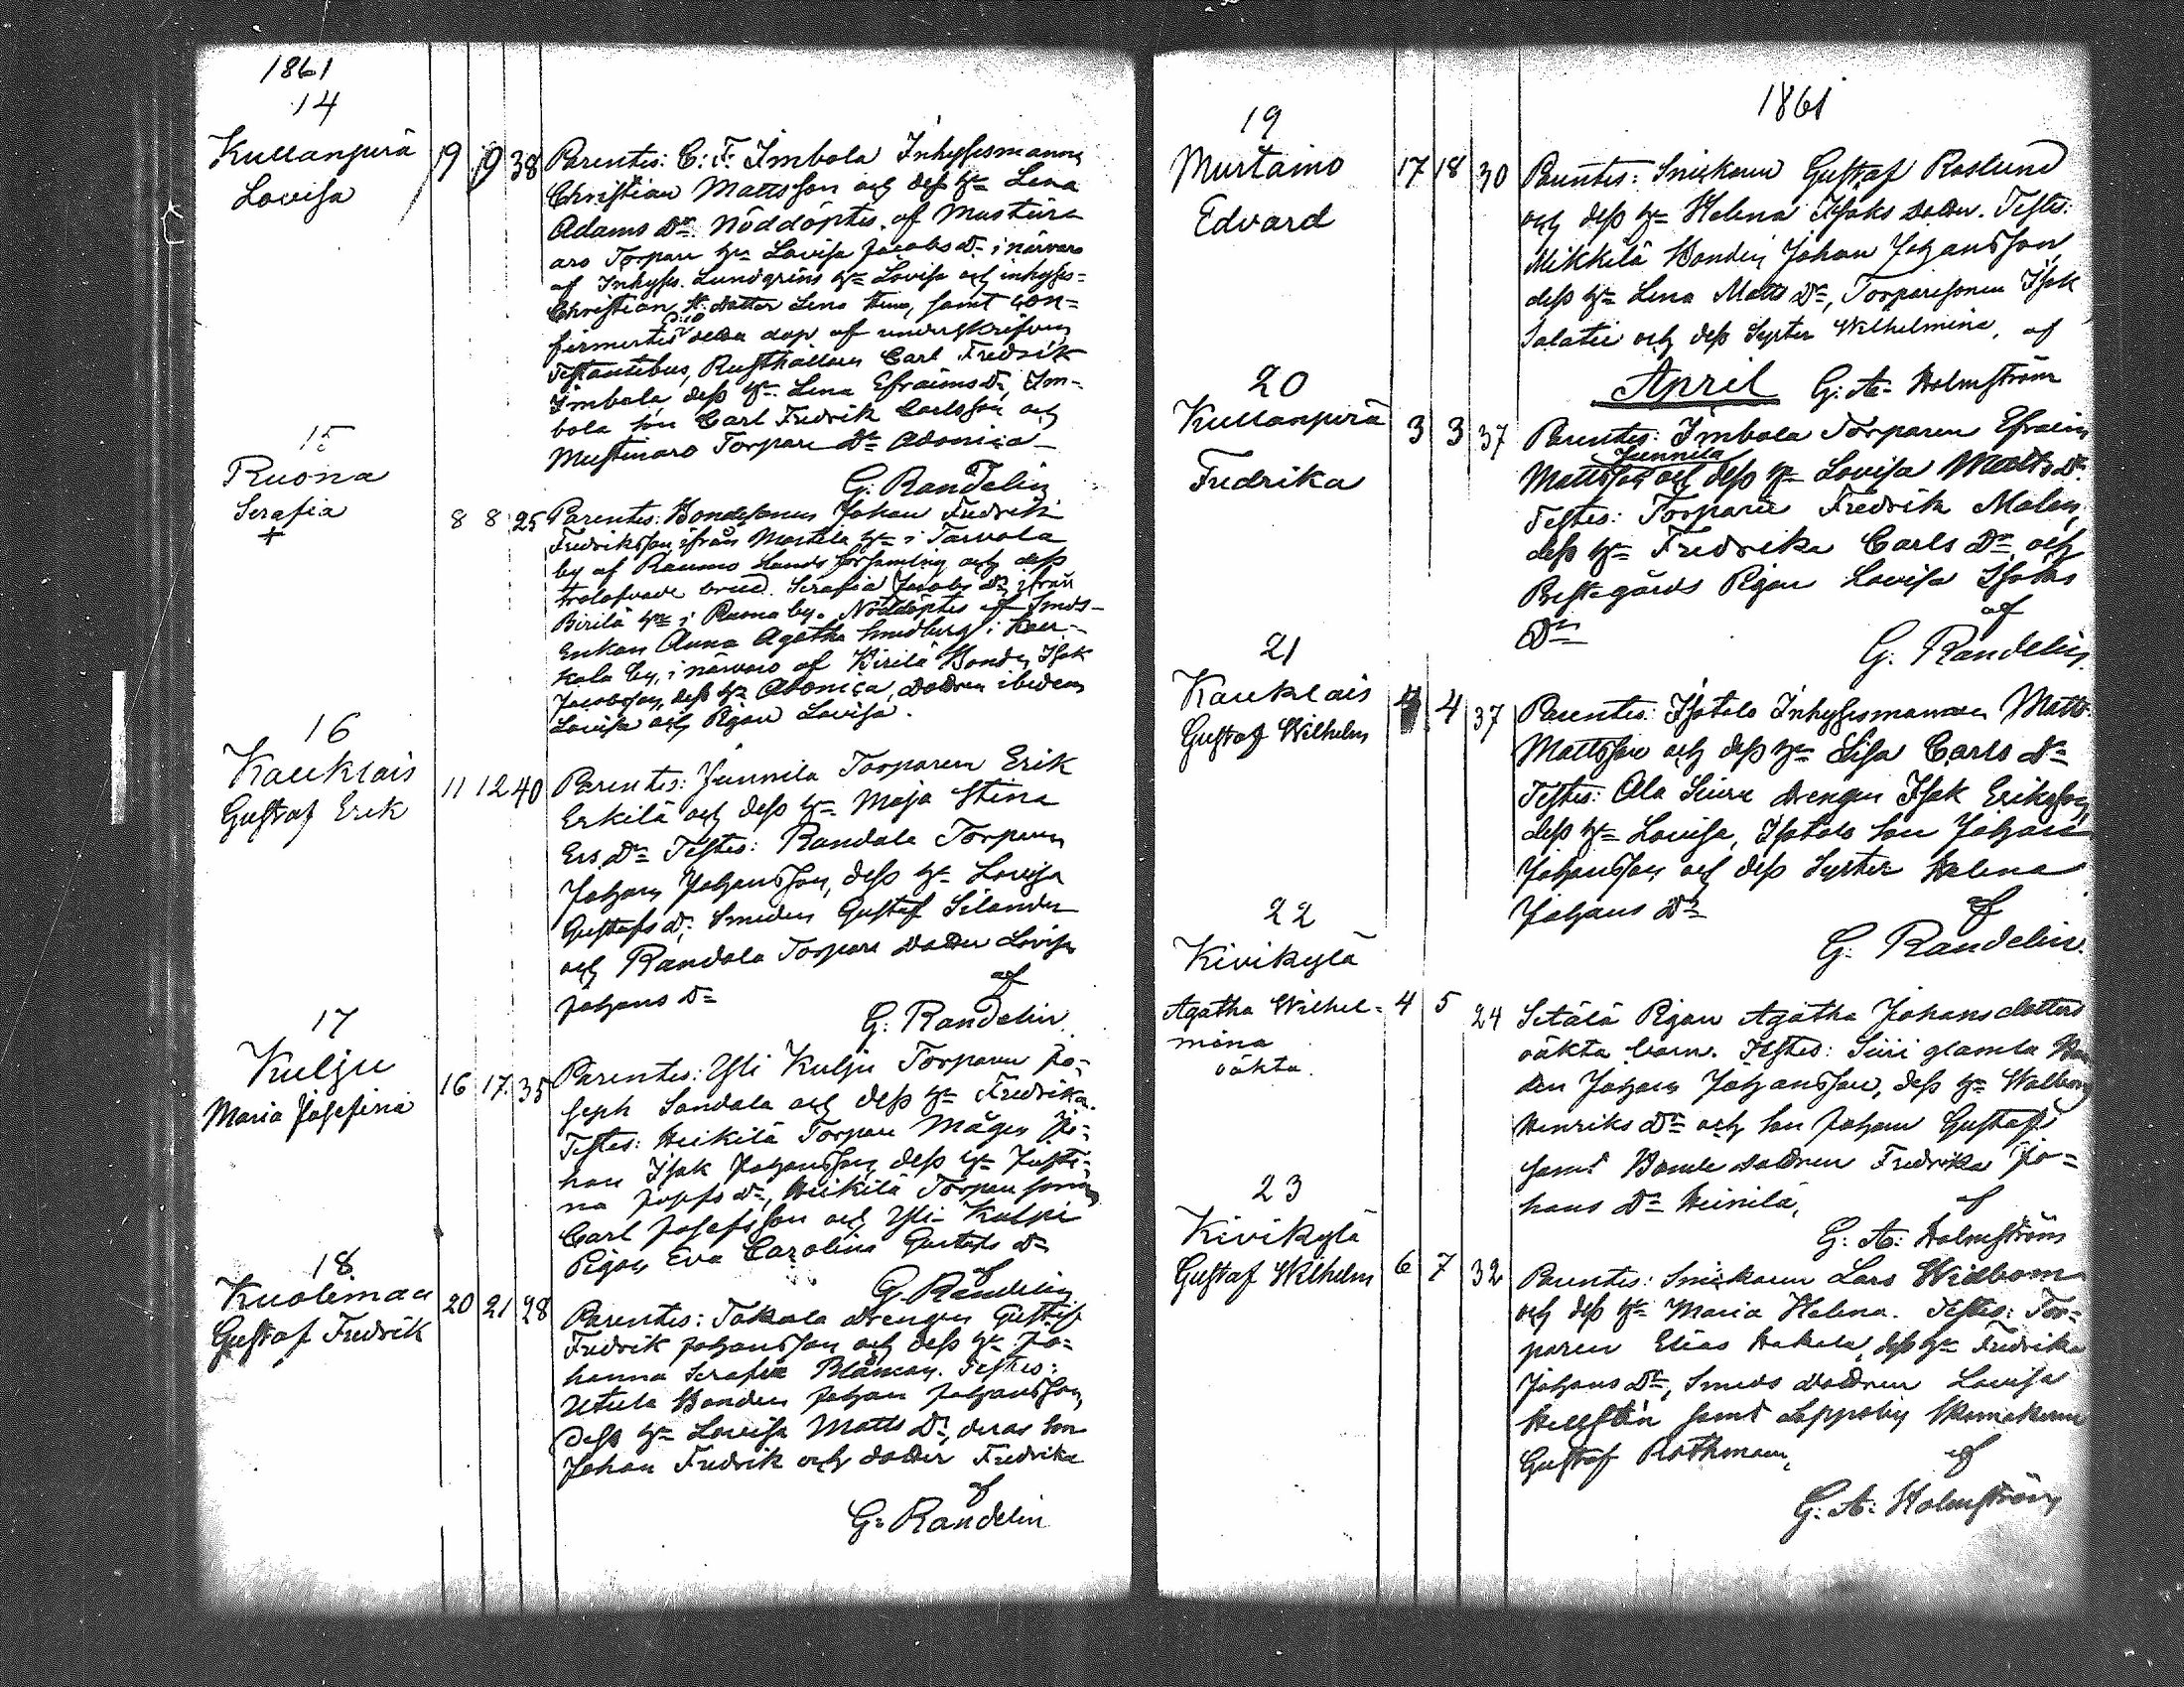 1861
14
Kullanperä
Lovisa
19 19 38
Parentes: C: F. Imbola Inhysesmannen
Christian Mattsson och dess h:u Lena
Adams D:r Nöddöptes af Mustura
aro Torpare h:u Lovisa Jacobs D:r i närvaro
af Inhyses Lundgrens h:u Lovisa och inhyses-
Christian dotter Lena Stina, samt con-
firmertes detta dop af underskrifven
Testantibus, Rusthållaren Carl Fredrik
Imbola dess h:u Lena Efraims D:r, Im-
bola son Carl Fredrik Carlsson och
Mustinaro Torpare D:r Adonica
G: Randelin
15
Ruona
Serafia
+
8 8 25
Parentes: Bondesonen Johan Fredrik
Fredriksson ifrån Martila h:n i Tarvola
by af Raumo Lands församling och dess
trolofvade brud Serafia Jacobs D:r ifrån
Birilä h:n i Ruona by. Nöddöptes af Smeds-
Enkan Anna Agatha Smedberg i
kola by, i närvaro af Birilä Bonden Isak
Jacobsson, dess h:u Adonica, dottren ibidem
Lovisa och Pigan Lovisa.
16
Kauklais
Gustaf Erik
11 12 40
Parentes: Junnila Torparen Erik
Erkilä och dess h:u Maja Stina
Ers D:r Testes: Randala Torparen
Johan Johansson, dess h:u Lovisa
Gustafs D:r Smeden Gustaf Silander
och Randala Torpare dotter Lovisa
Johans D:r
af
G: Randelin
17
Kulju
Maria Josefina
16 17 35
Parentes: Yli Kulju Torparen Jo-
seph Sandala och dess h:u Fredrika.
Testes: Heikilä Torpare Mågen Jo-
han Isak Johansson dess h:u Justi-
na Josefs D:r, Heikilä Torpare sonen
Carl Josefsson och Yli-Kulju
Pigan Eva Carolina Gustafs D:r
af
G. Randelin
18
Kuolemaa
Gustaf Fredrik
20 21 28
Parentes: Takala drengen Gustaf
Fredrik Johansson och dess h:u Jo-
hanna Serafia Blåman. Testes:
Utula Bonden Johan Johansson,
Dess h:u Lovisa Matts D:r, deras son
Johan Fredrik och dotter Fredrika
af
G: Randelin
1861
19
Murtamo
Edvard
17 18 30
Parentes: Snickaren Gustaf Roslund
och dess h:u Helena Isaks dotter. Testes:
Mikkilä Bonden Johan Johansson
dess h:u Lena Matts D:r, Torparesonen Isak
Salatie och dess Syster Wilhelmina, af
G: A: Holmström
April
20
Kullanperä
Fredrika
3 3 37
Parentes: Imbola Torparen Efraim
Junnila
Mattsson och dess h:u Lovisa Matts D:r
Testes: Torparen Fredrik Malen,
dess h:u Fredrika Carls D:r och
Prestegårds Pigan Lovisa Isaks
D:r
af
G: Randelin
21
Kauklais
Gustaf Wilhelm
4 4 37
Parentes: Isotalo Inhysesmannen Matts
Mattsson och dess h:u Lisa Carls D:r
Testes: Ala Seura drengen Isak Eriksson,
dess h:u Lovisa, Isotalo son Johan
Johansson och dess Syster Helena
Johans D:r
af
G: Randelin.
22
Kivikylä
Agatha Wilhel-
mina
oäkta.
4 5 24
Setälä Pigan Agatha Johansdotters
oäkta barn. Testes: Siiri gamla Bon
den Johan Johansson, dess h:u Walborg
Henriks D:r och son Johan Gustaf
samt Bonde dottren Fredrika Jo-
hans D:r Heinilä,
af
G: A: Holmström
23
Kivikylä
Gustaf Wilhelm
6 7 32
Parentes: Snickaren Lars Widbom
och dess h:u Maria Helena. Testes: Tor-
paren Elias Hakala, dess h:u Fredrika
Johans D:r, Smeds dottren Lovisa
Hellstén samt Lappoby Skomakaren
Gustaf Rothman,
af
G: A: Holmström